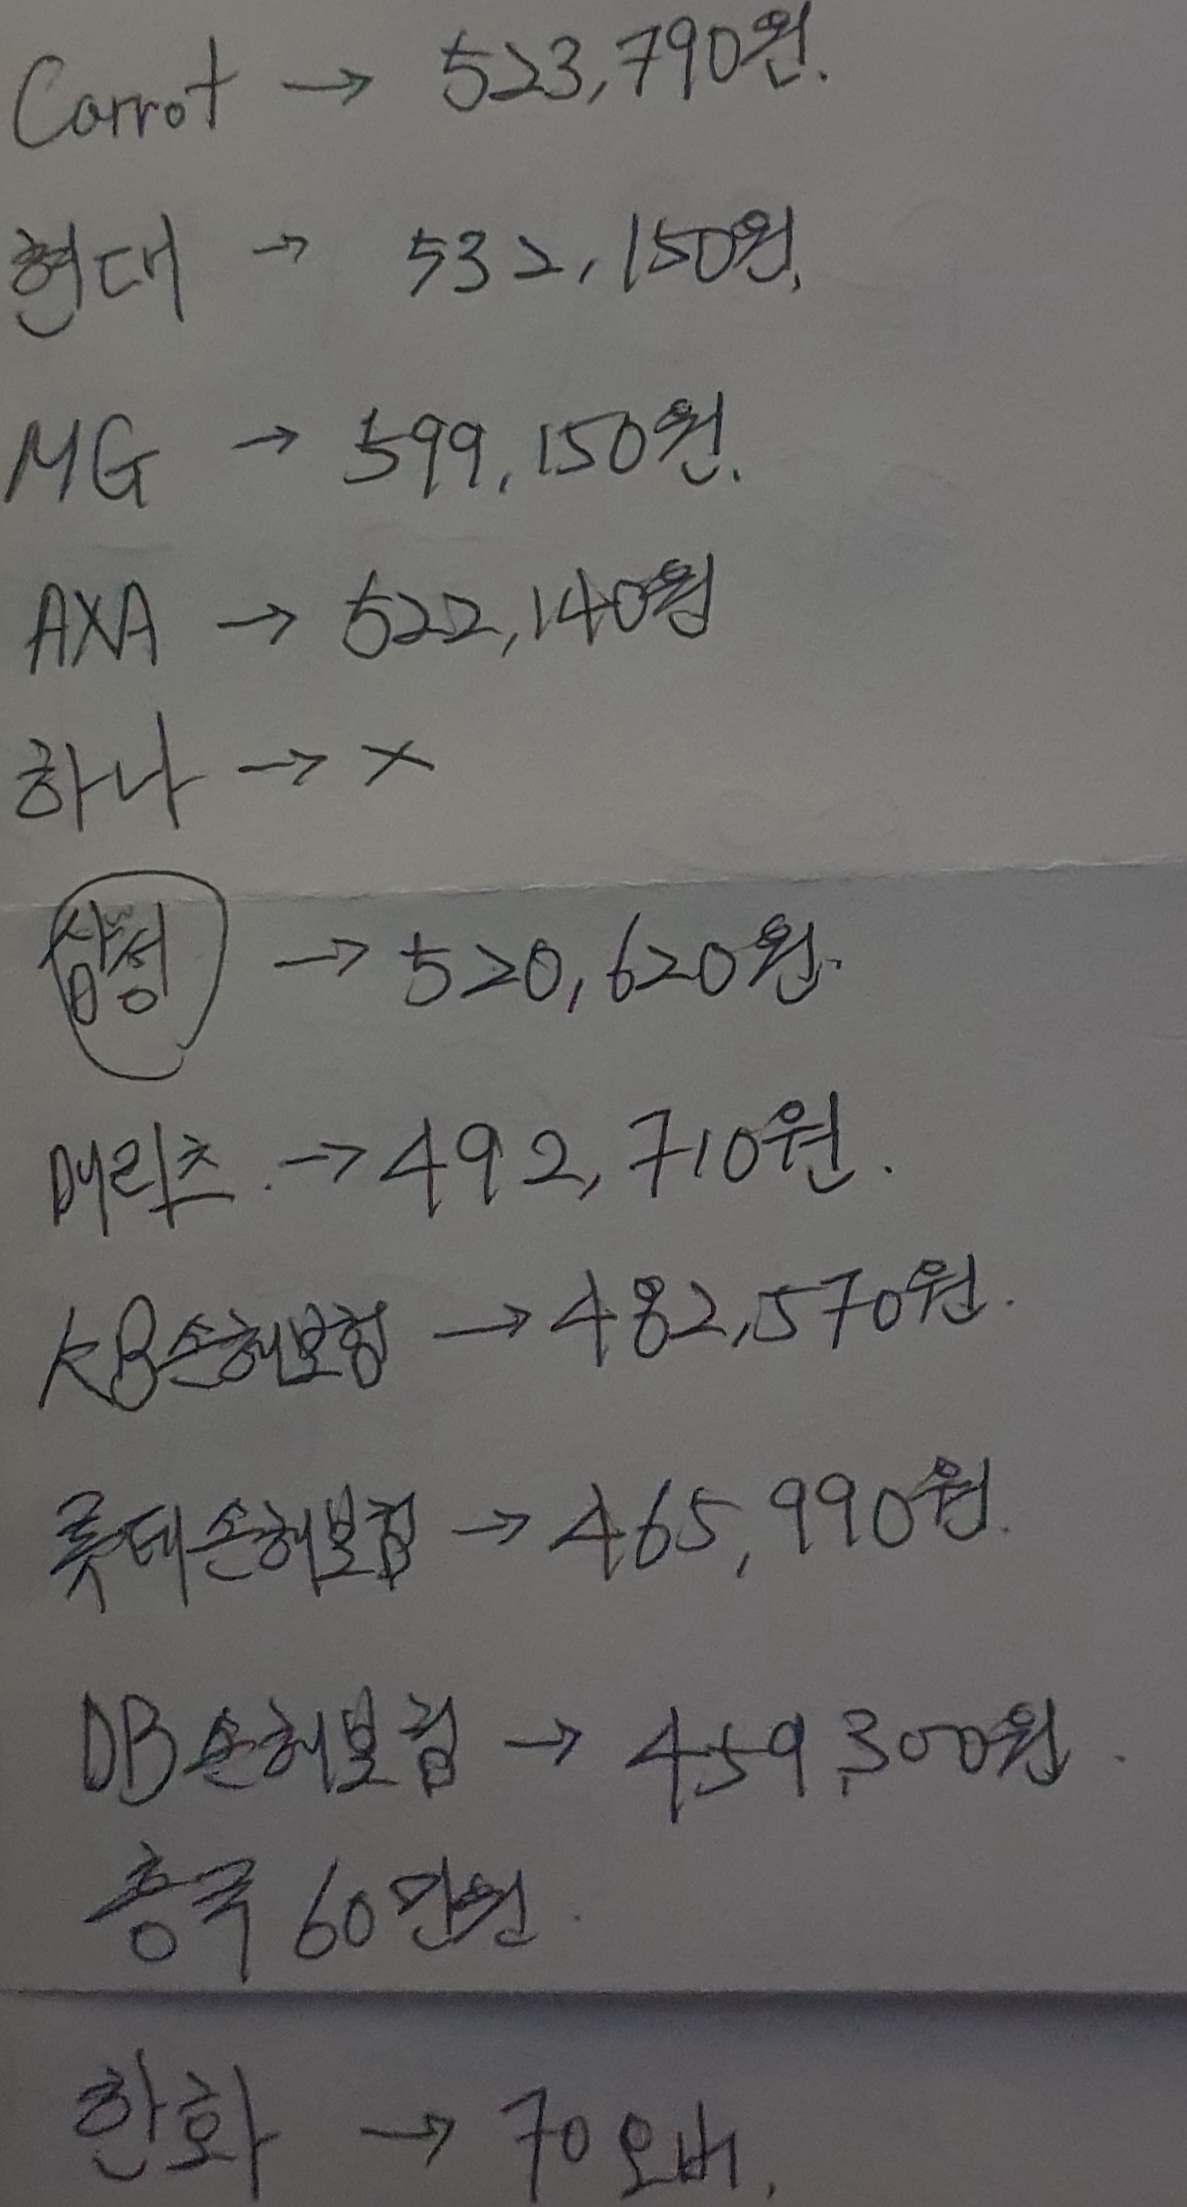 Carrot → 523,790원.
현대 → 532,150원.
MG → 599,150원.
AXA → 522,140원
하나 → ×
삼성 → 520,620원.
메리츠. → 492,710원.
KB손해보험 → 482,570원.
롯데손해보험 → 465,990원.
DB손해보험 → 459,300원.
흥국 60만원.
한화 → 70오버.